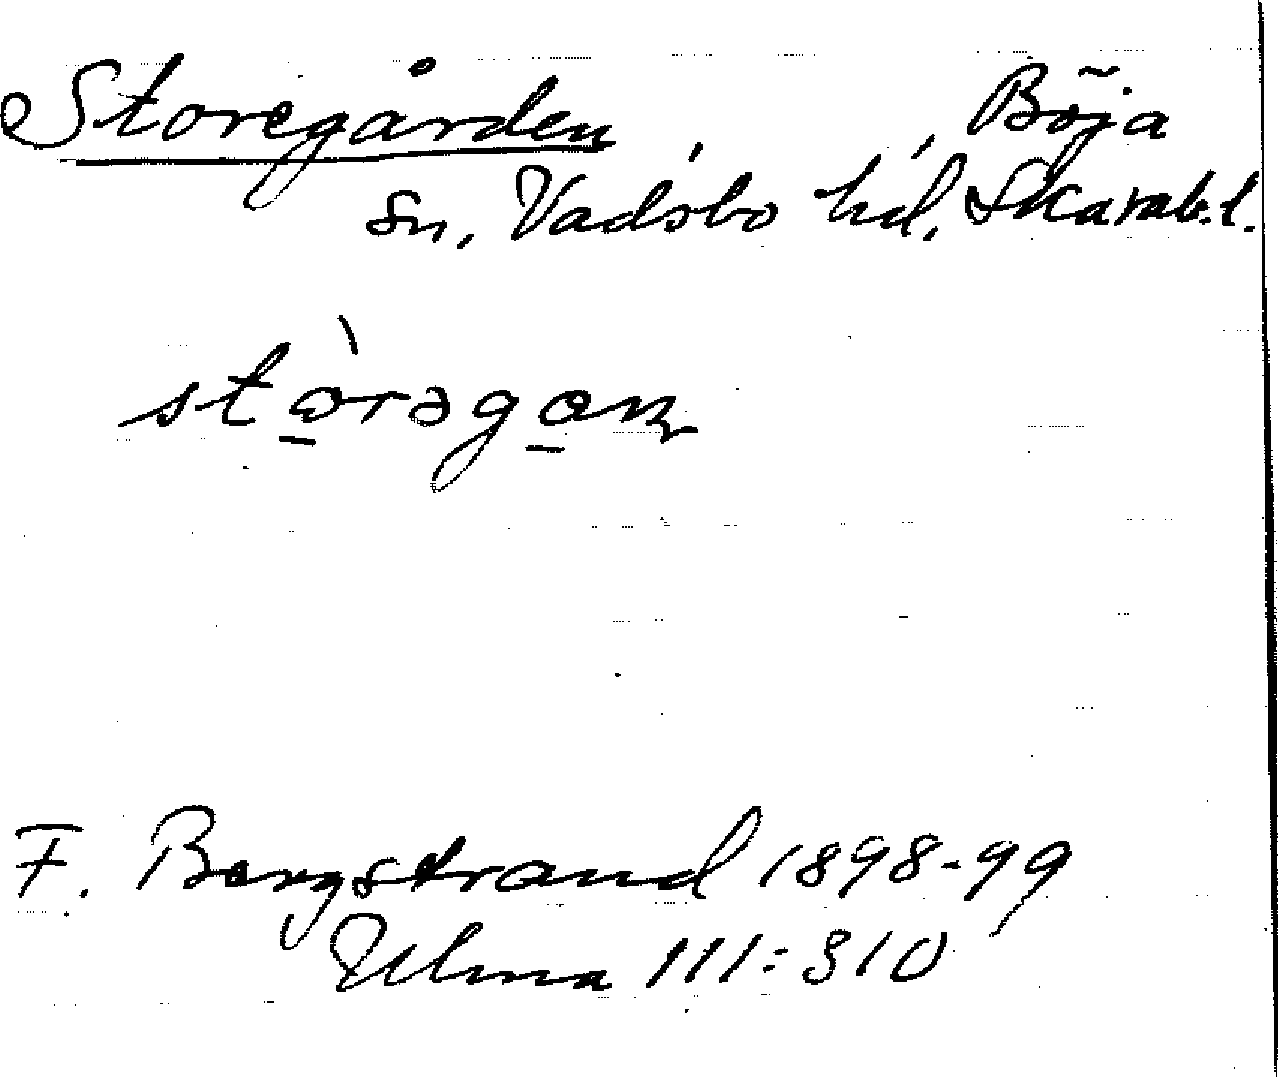 Storegården, Böja
sn, Vadsbo hd, Skarab.l.
stò̱rəgo̱ɳ
F. Bergstrand 1898-99
Ulma 111:310